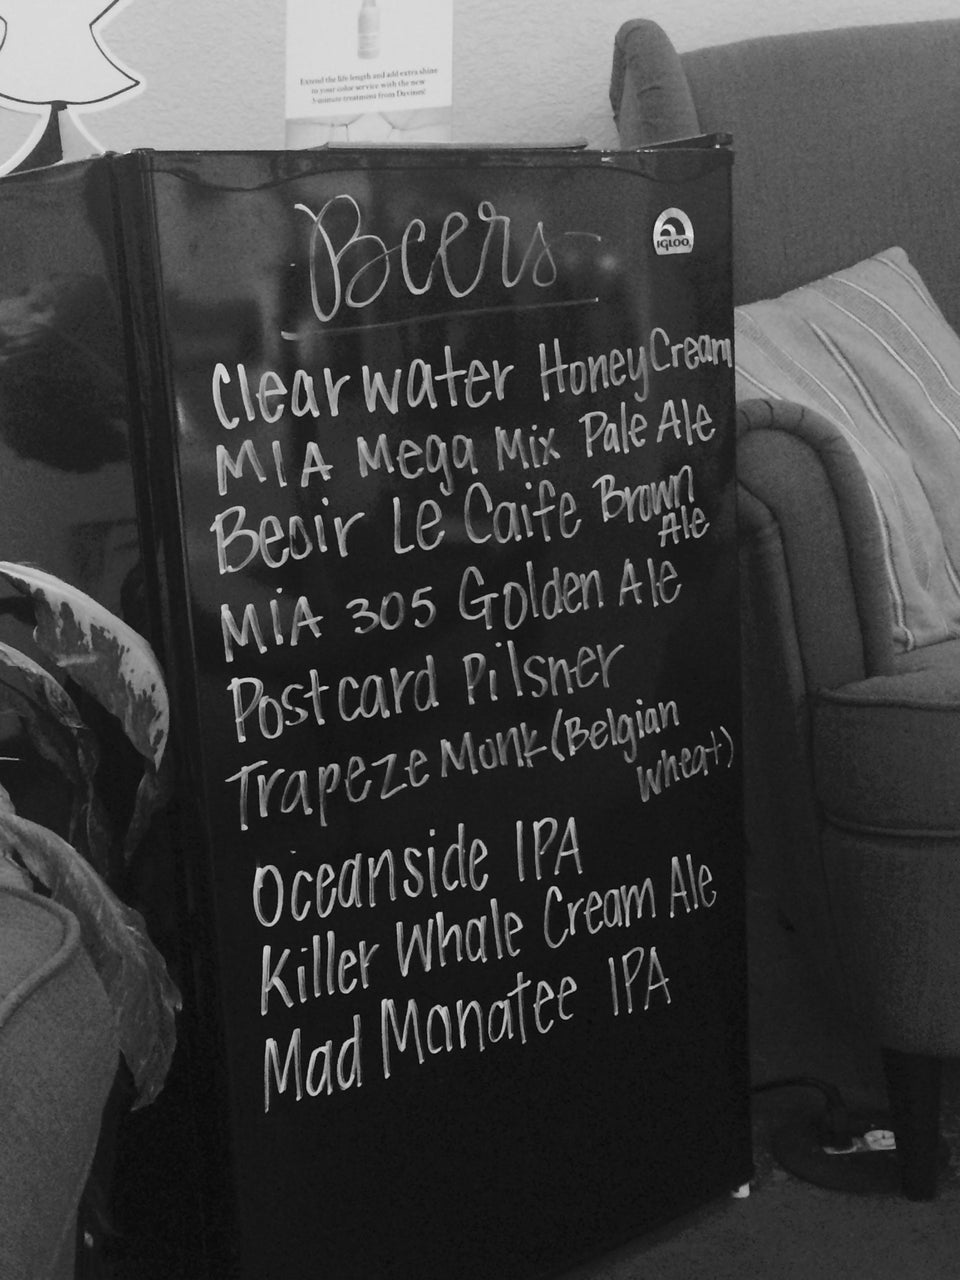 Extend the life length and add extra shine
to your color service with the new
3-minute treatment from Davines!
Beers
IGLOO
Clearwater Honey Cream
MIA Mega Mix Pale Ale
Beoir Le Caife Brown
Ale
MIA 305 Golden Ale
Postcard Pilsner
Trapeze Monk (Belgian
Wheat)
Oceanside IPA
Killer Whale Cream Ale
Mad Manatee IPA